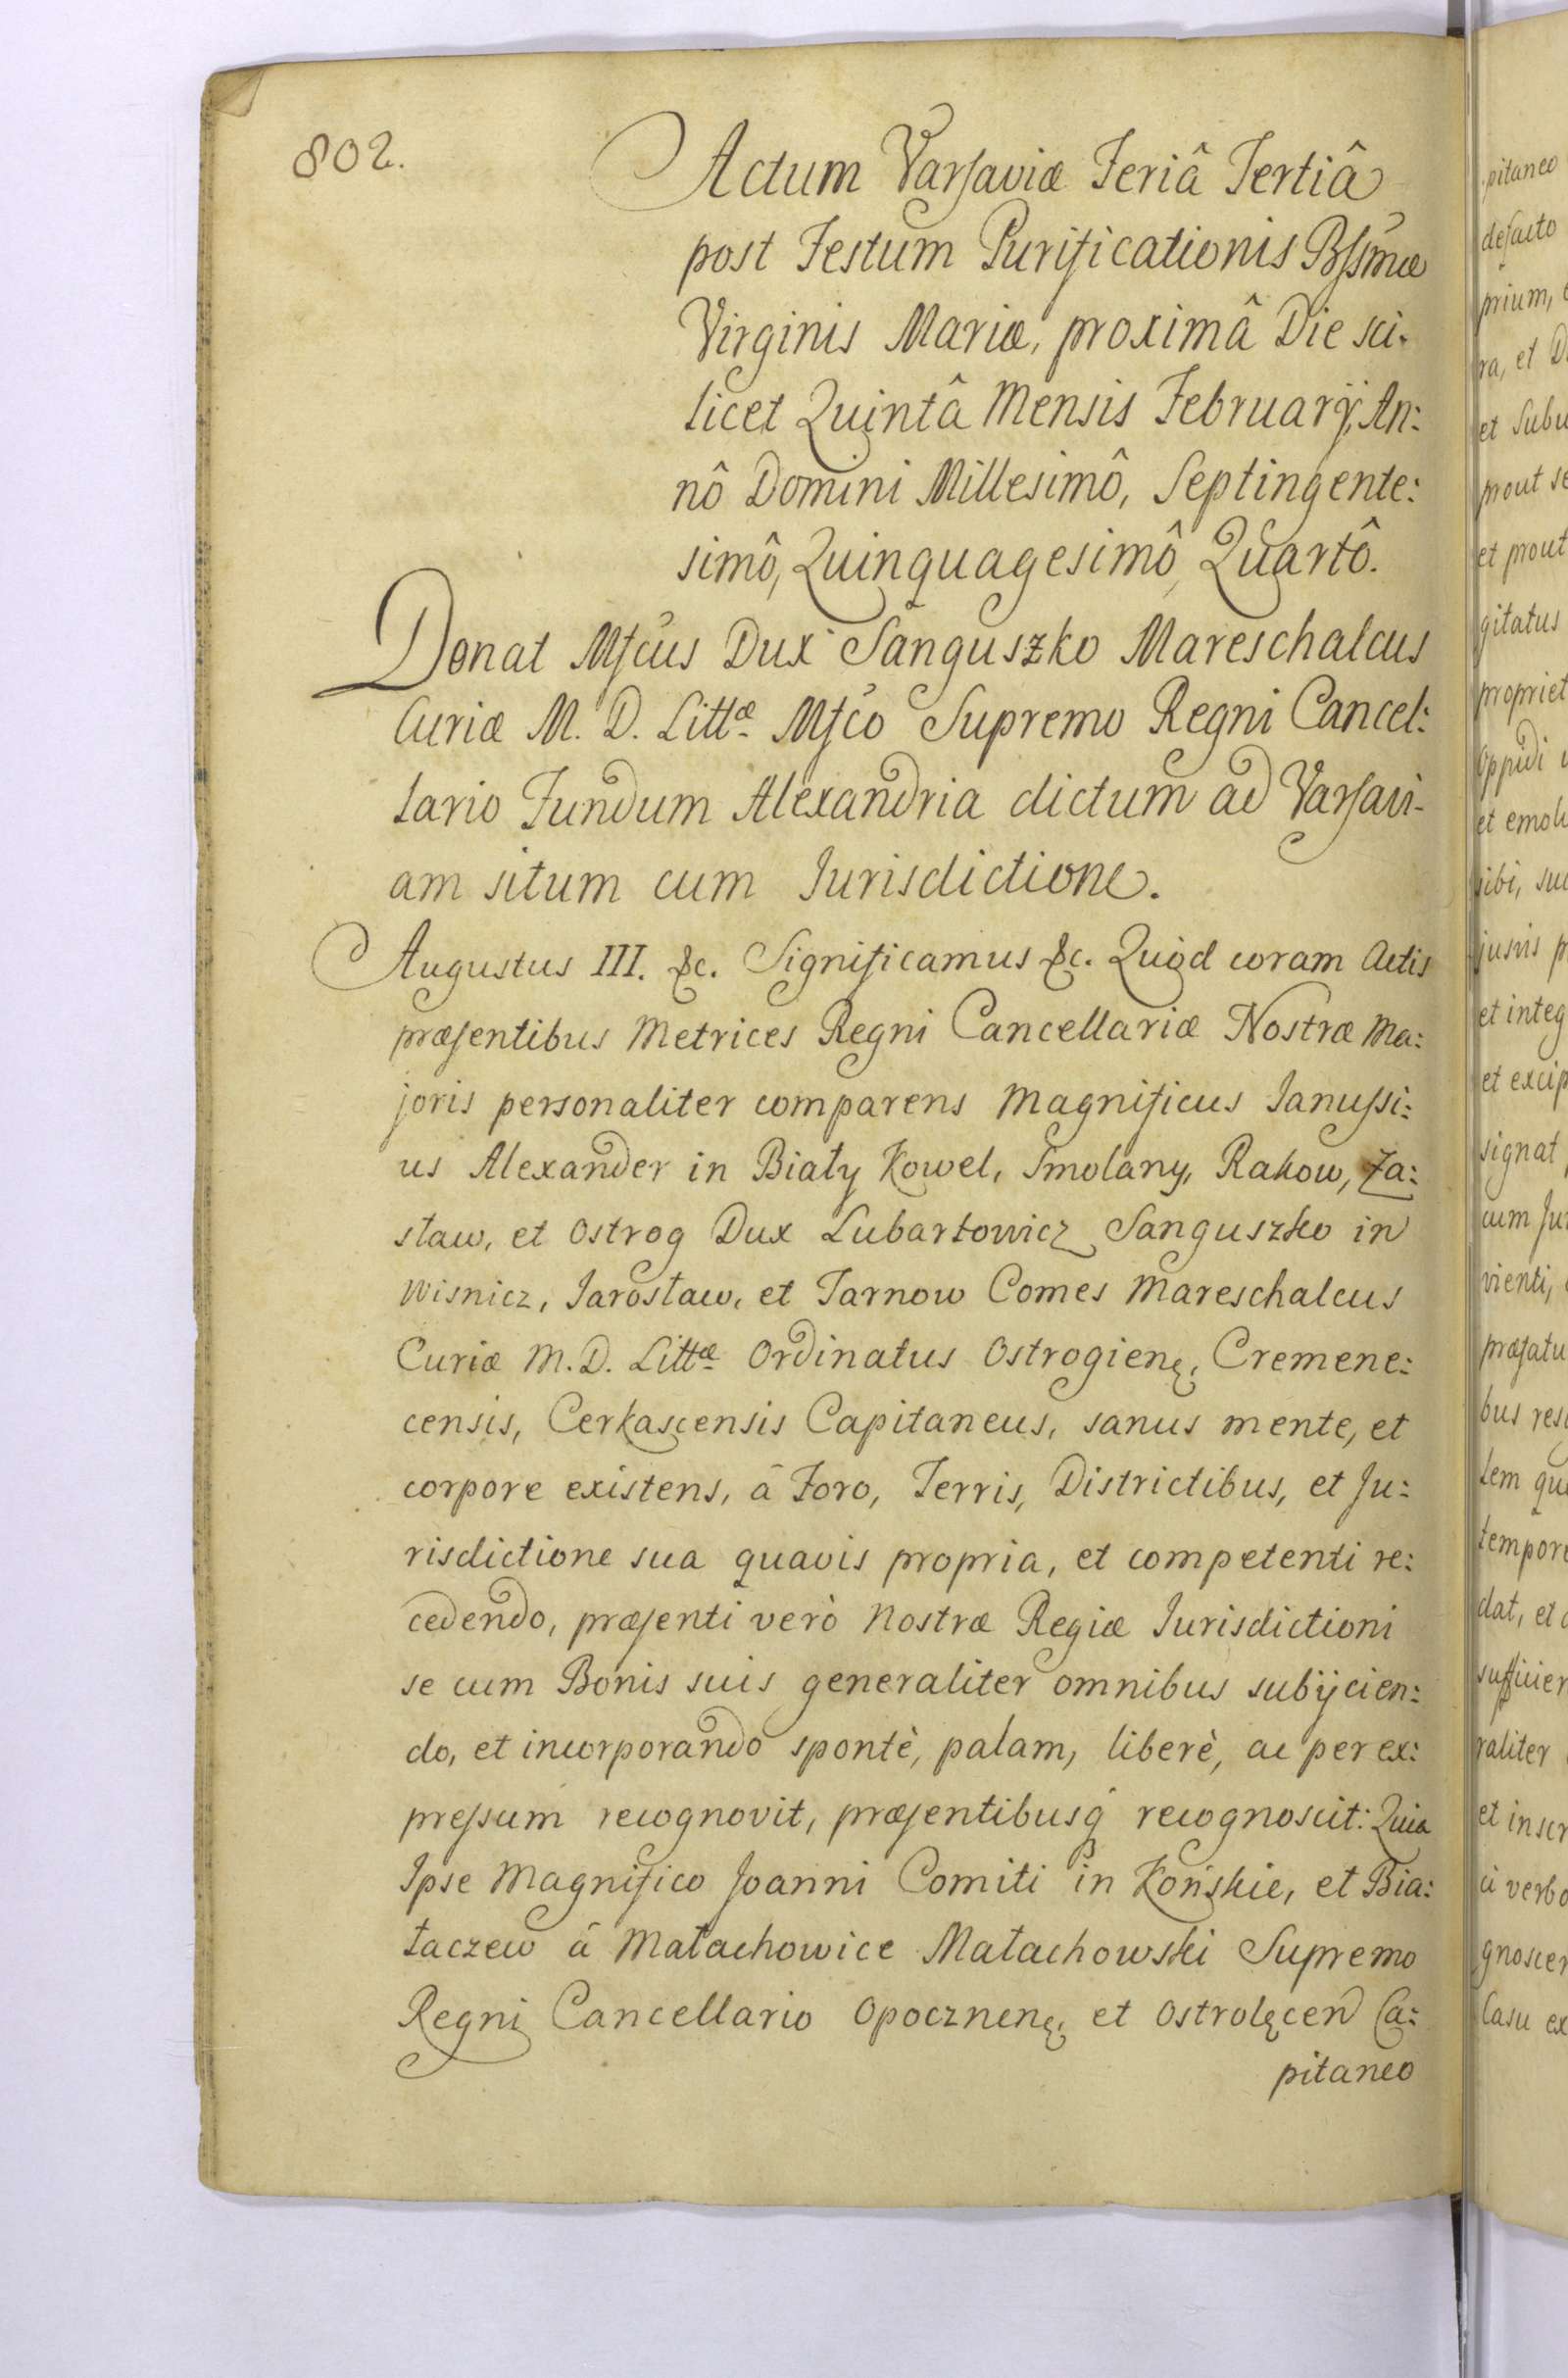 802.
Actum Varsaviæ Feriâ Tertiâ
post Festum Purificationis Bssmæ
Virginis Mariæ, proximâ Die sci-
licet Quintâ Mensis Februarÿ, An:
nô Domini Millesimô, Septingente:
simô, Quinquagesimô, Quartô.
Donat Mfcus Dux Sanguszko Mareschalcus
Curiæ M. D. Littæ Mfco Supremo Regni Cancel:
lario Fundum Alexandria dictum ad Varsavi-
am situm cum Jurisdictione.
Augustus III. &c. Significamus &c. Quòd coram Actis
præsentibus Metrices Regni Cancellariæ Nostræ Ma:
joris personaliter comparens Magnificus Janussi:
us Alexander in Biały Kowel, Smolany, Rakow, Za:
sław, et Ostrog Dux Lubartowicz Sanguszko in
Wisnicz, Jarosław, et Tarnow Comes Mareschalcus
Curiæ M. D. Littæ Ordinatus Ostrogienę, Cremene:
censis, Cerkascensis Capitaneus, sanus mente, et
corpore existens, â Foro, Terris, Districtibus, et Ju:
risdictione sua quavis propria, et competenti re:
cedendo, præsenti verò Nostræ Regiæ Jurisdictioni
se cum Bonis suis generaliter omnibus subÿcien:
do, et incorporando spontè, palam, liberè, ac per ex:
pressum recognovit, præsentibusq́ recognoscit: Quia
Ipse Magnifico Joanni Comiti in Końskie, et Bia:
łaczew â Małachowice Małachowski Supremo
Regni Cancellario Opocznenę, et Ostrolęcen Ca:
pitaneo
pitaneo
defacto
prium,
ra, et
et Subu
prout se
et prout
gitatus
propriet
Oppidi
et emolu
sibi, suc
jusvis p
et integ
et excip
signat
cum Ju
vienti,
præfatu
bus res
tem qu
tempore
dat, et
sufficien
raliter
et inscr
â verbo
gnoscen
Casu ex